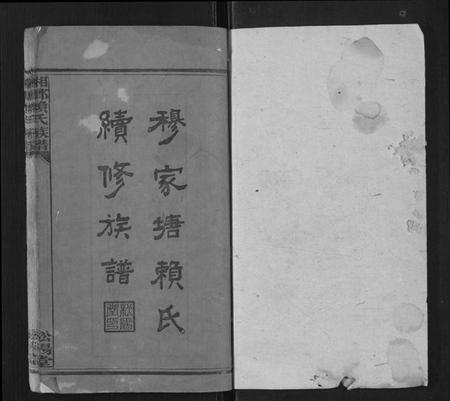 穆家塘賴氏
續修族譜
湘鄉賴氏族譜
松陽堂